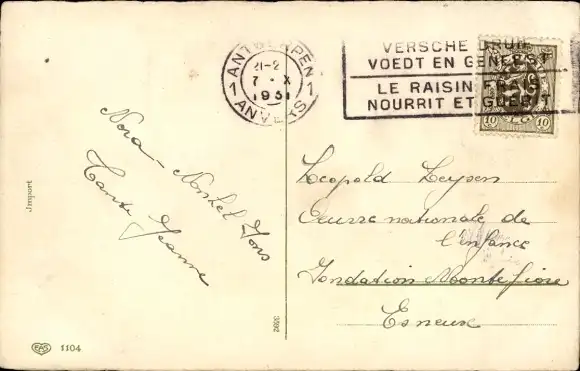 ANTWERPEN
21-2
7 · X
1931
1 1
ANVERS
VERSCHE DRUIF
VOEDT EN GENEEST
LE RAISIN FRAIS
NOURRIT ET GUERIT
10 10
Nora - Nonkel Fons
Tante Jeanne
Leopold Leysen
Oeuvre nationale de
l'enfance
Fondation Montefiore
Esneux
Import
3392
EAS 1104